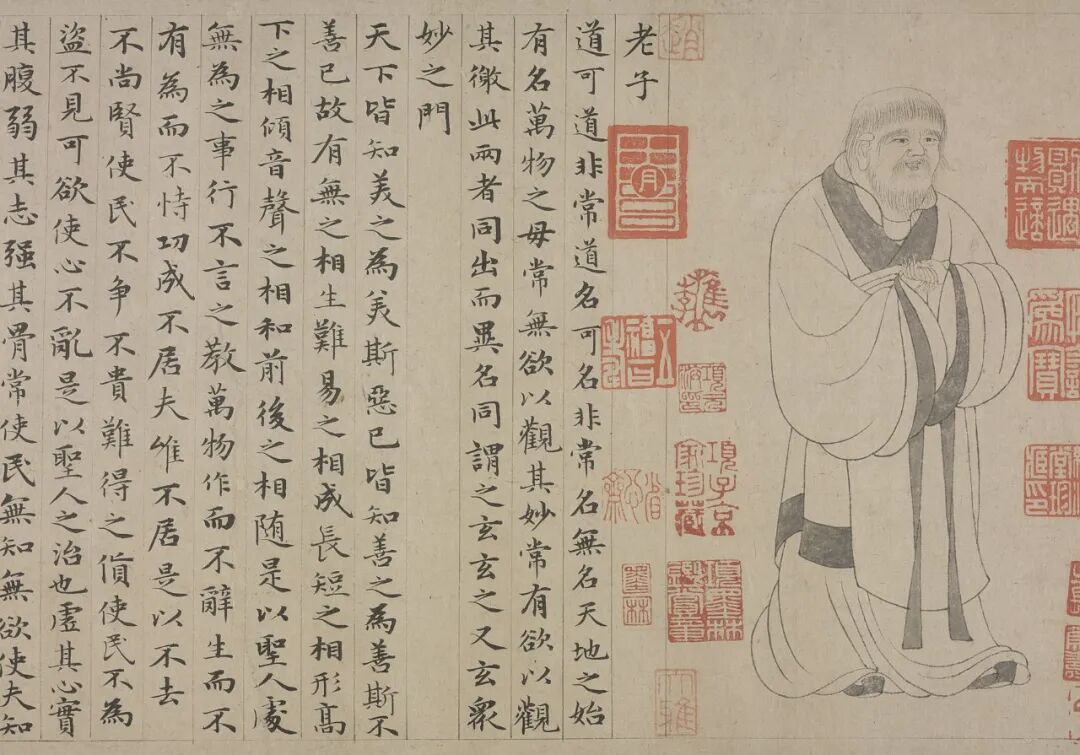 老子
道可道非常道名可名非常名無名天地之始
有名萬物之母常無欲以觀其妙常有欲以觀
其徼此兩者同出而異名同謂之玄玄之又玄眾
妙之門
天下皆知美之為美斯惡已皆知善之為善斯不
善已故有無之相生難易之相成長短之相形高
下之相傾音聲之相和前後之相随是以聖人處
無為之事行不言之教萬物作而不辭生而不
有為而不恃功成不居夫唯不居是以不去
不尚賢使民不争不貴難得之貨使民不為
盜不見可欲使心不亂是以聖人之治也虛其心實
其腹弱其志强其骨常使民無知無欲使夫知
項子京
家珍藏
墨林